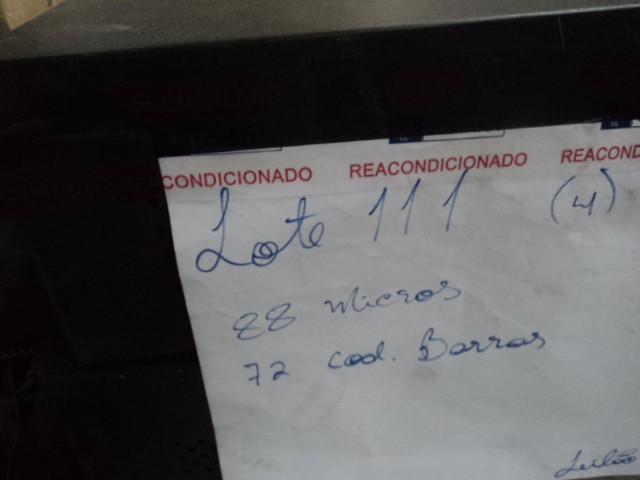 CONDICIONADO REACONDICIONADO REACOND
Lote 111 (4)
88 Micros
72 cod. Barras
Leilão